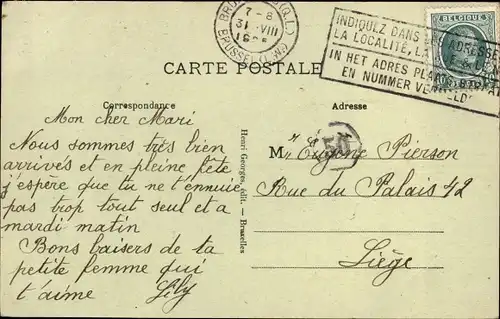 BRUSSEL
7-8
31 VIII
BRUXELLES
INDIQUEZ DANS L'ADRESSE
LA LOCALITÉ, LA RUE & LE N°
IN HET ADRES PLAATS, STRAAT
EN NUMMER VERMELDEN
BELGIQUE
CARTE POSTALE
Correspondance
Adresse
Mon cher Mari
Nous sommes très bien
arrivés et en pleine fête
j'espère que tu ne t'ennuie
pas trop tout seul et a
mardi matin
Bons baisers de ta
petite femme qui
t'aime Lily
Henri Georges, édit. — Bruxelles
M. Eugène Pierson
Rue du Palais 42
Liège